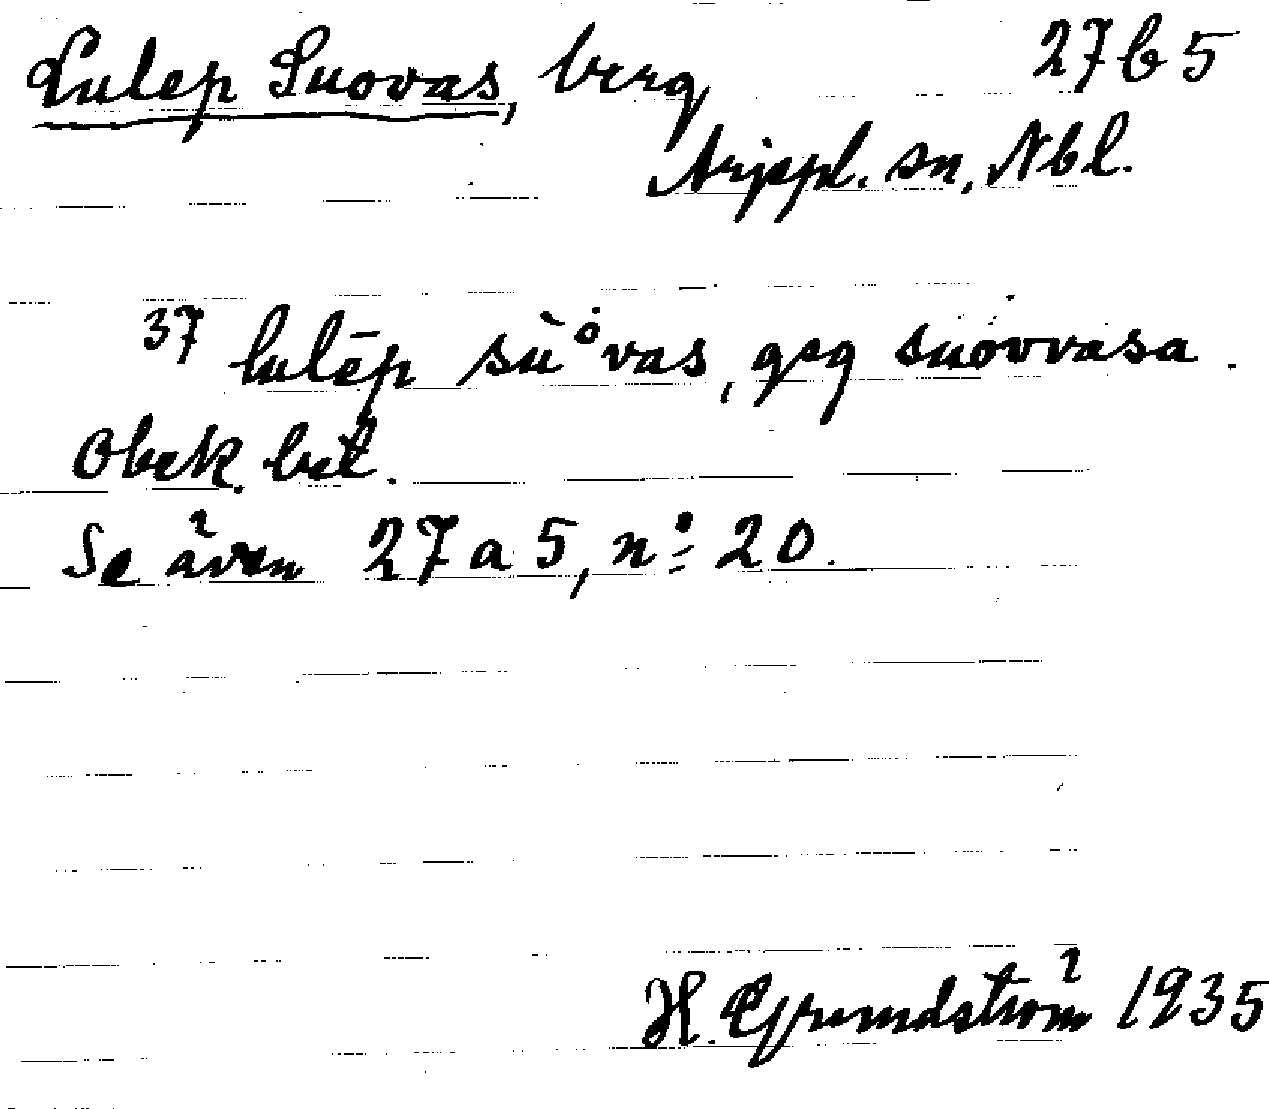 Lulep Suovas, berg 27 b 5
Arjepl. sn, Nbl.
37 lulēp sùåvas, geg suovvasa.
Obek. bet.
Se även 27 a 5, nº 20.
H. Grundström 1935